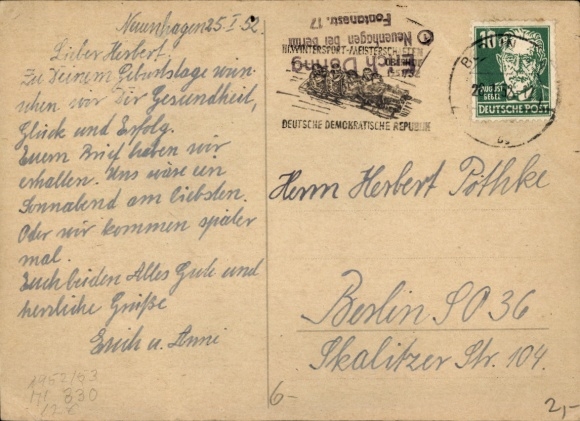 Neuenhagen 25.I.52.
Lieber Herbert.
Zu Deinem Geburtstage wün-
schen wir Dir Gesundheit,
Glück und Erfolg.
Euern Brief haben wir
erhalten. Uns wäre ein
Sonnabend am liebsten.
Oder wir kommen später
mal.
Euch beiden Alles Gute und
herzliche Grüße
Erich u. Anni
1952/53
330
Erich Döring
Neuenhagen bei Berlin
Fontanestr. 17
WINTERSPORT-MEISTERSCHAFTEN
DEUTSCHE DEMOKRATISCHE REPUBLIK
10
AUGUST
BEBEL
DEUTSCHE POST
Herrn Herbert Pöthke
Berlin SO 36
Skalitzer Str. 104.
6-
2,-